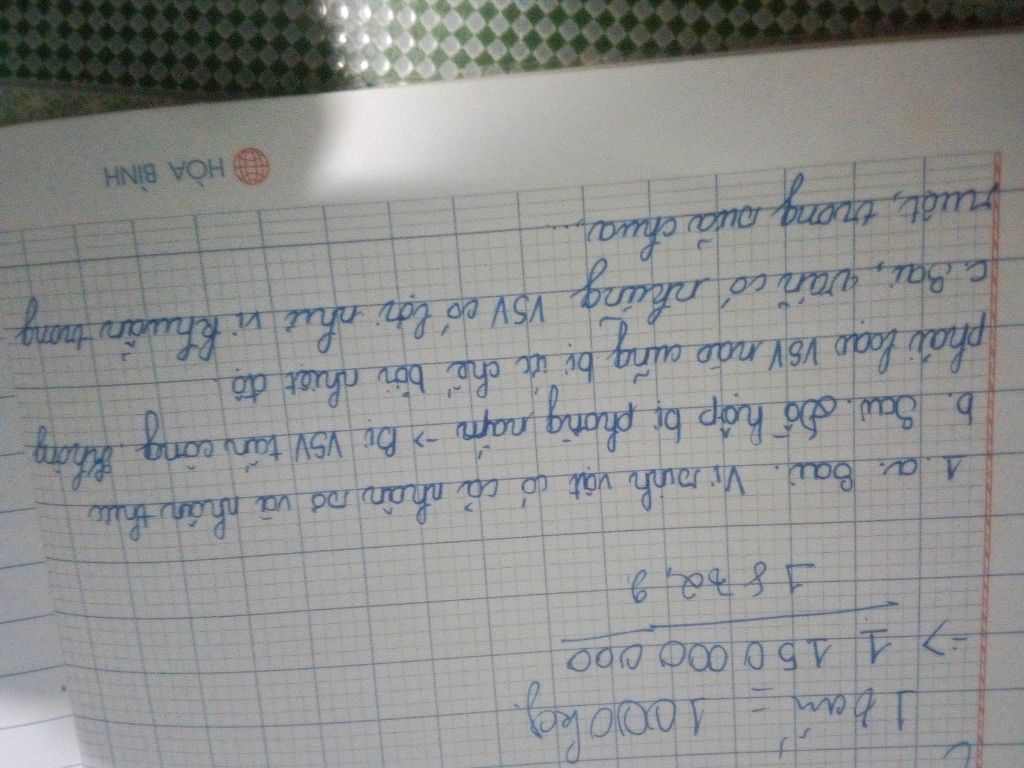 1 tấn = 1000kg
=> 1 150 000 000
1 8 32,9
1. a. Sai. Vi sinh vật có cả nhân sơ và nhân thực
b. Sai. Đồ hộp bị phồng nắp -> bị VSV tấn công. Không
phải loại VSV nào cũng bị ức chế bởi nhiệt độ.
c. Sai, vẫn có những VSV có lợi như vi khuẩn trong
ruột, trong sữa chua,...
HÒA BÌNH